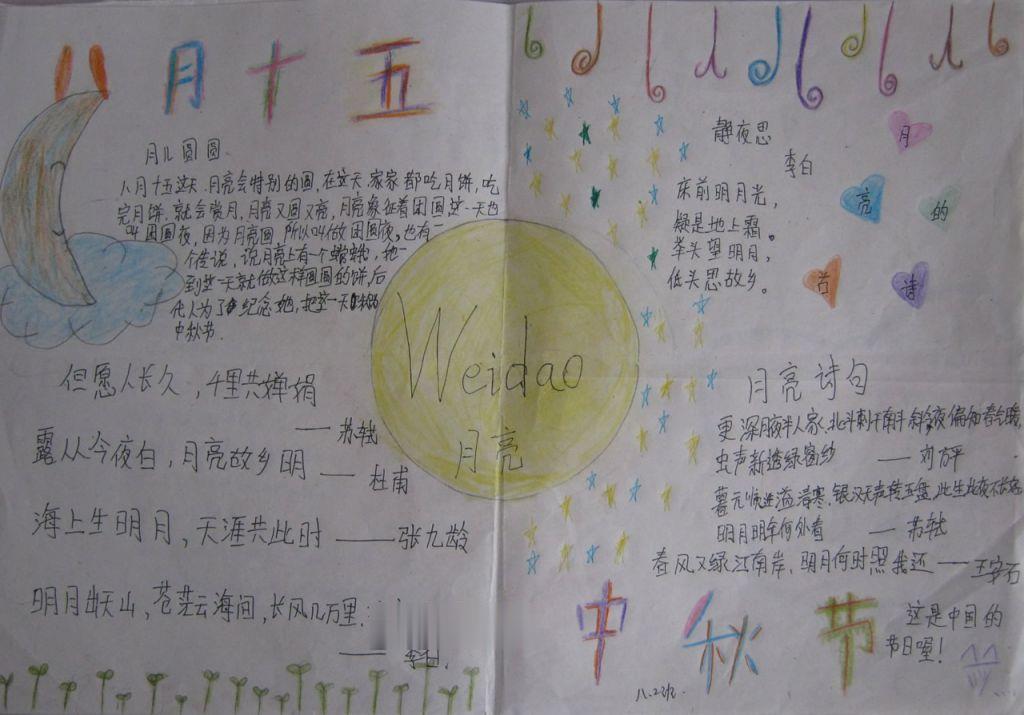 八月十五
月儿圆圆.
八月十五这天.月亮会特别的圆,在这天家家都吃月饼,吃
完月饼.就会赏月,月亮又圆又亮,月亮象征着团圆这一天也
叫团圆夜,因为月亮圆 所以叫做团圆夜。也有一
个传说,说月亮上有个嫦娥,她一
到这一天就做这样圆圆的饼,后
代人为了纪念她,把这一天
中秋节.
但愿人长久,千里共婵娟
——苏轼
露从今夜白,月亮故乡明 ——杜甫
海上生明月,天涯共此时 ——张九龄
明月出天山,苍茫云海间,长风几万里.
Weidao
月亮
静夜思
李白
床前明月光,
疑是地上霜。
举头望明月,
低头思故乡。
月
亮
的
古
诗
月亮诗句
更深月夜半人家,北斗 南斗 夜偏知春
虫声新透绿窗纱 ——刘方平
溢清寒,银汉无声转玉盘,此生此夜不长
明月明年何处看 ——苏轼
春风又绿江南岸,明月何时照我还——王安石
中秋节
这是中国的
节日喔!
八.2班.